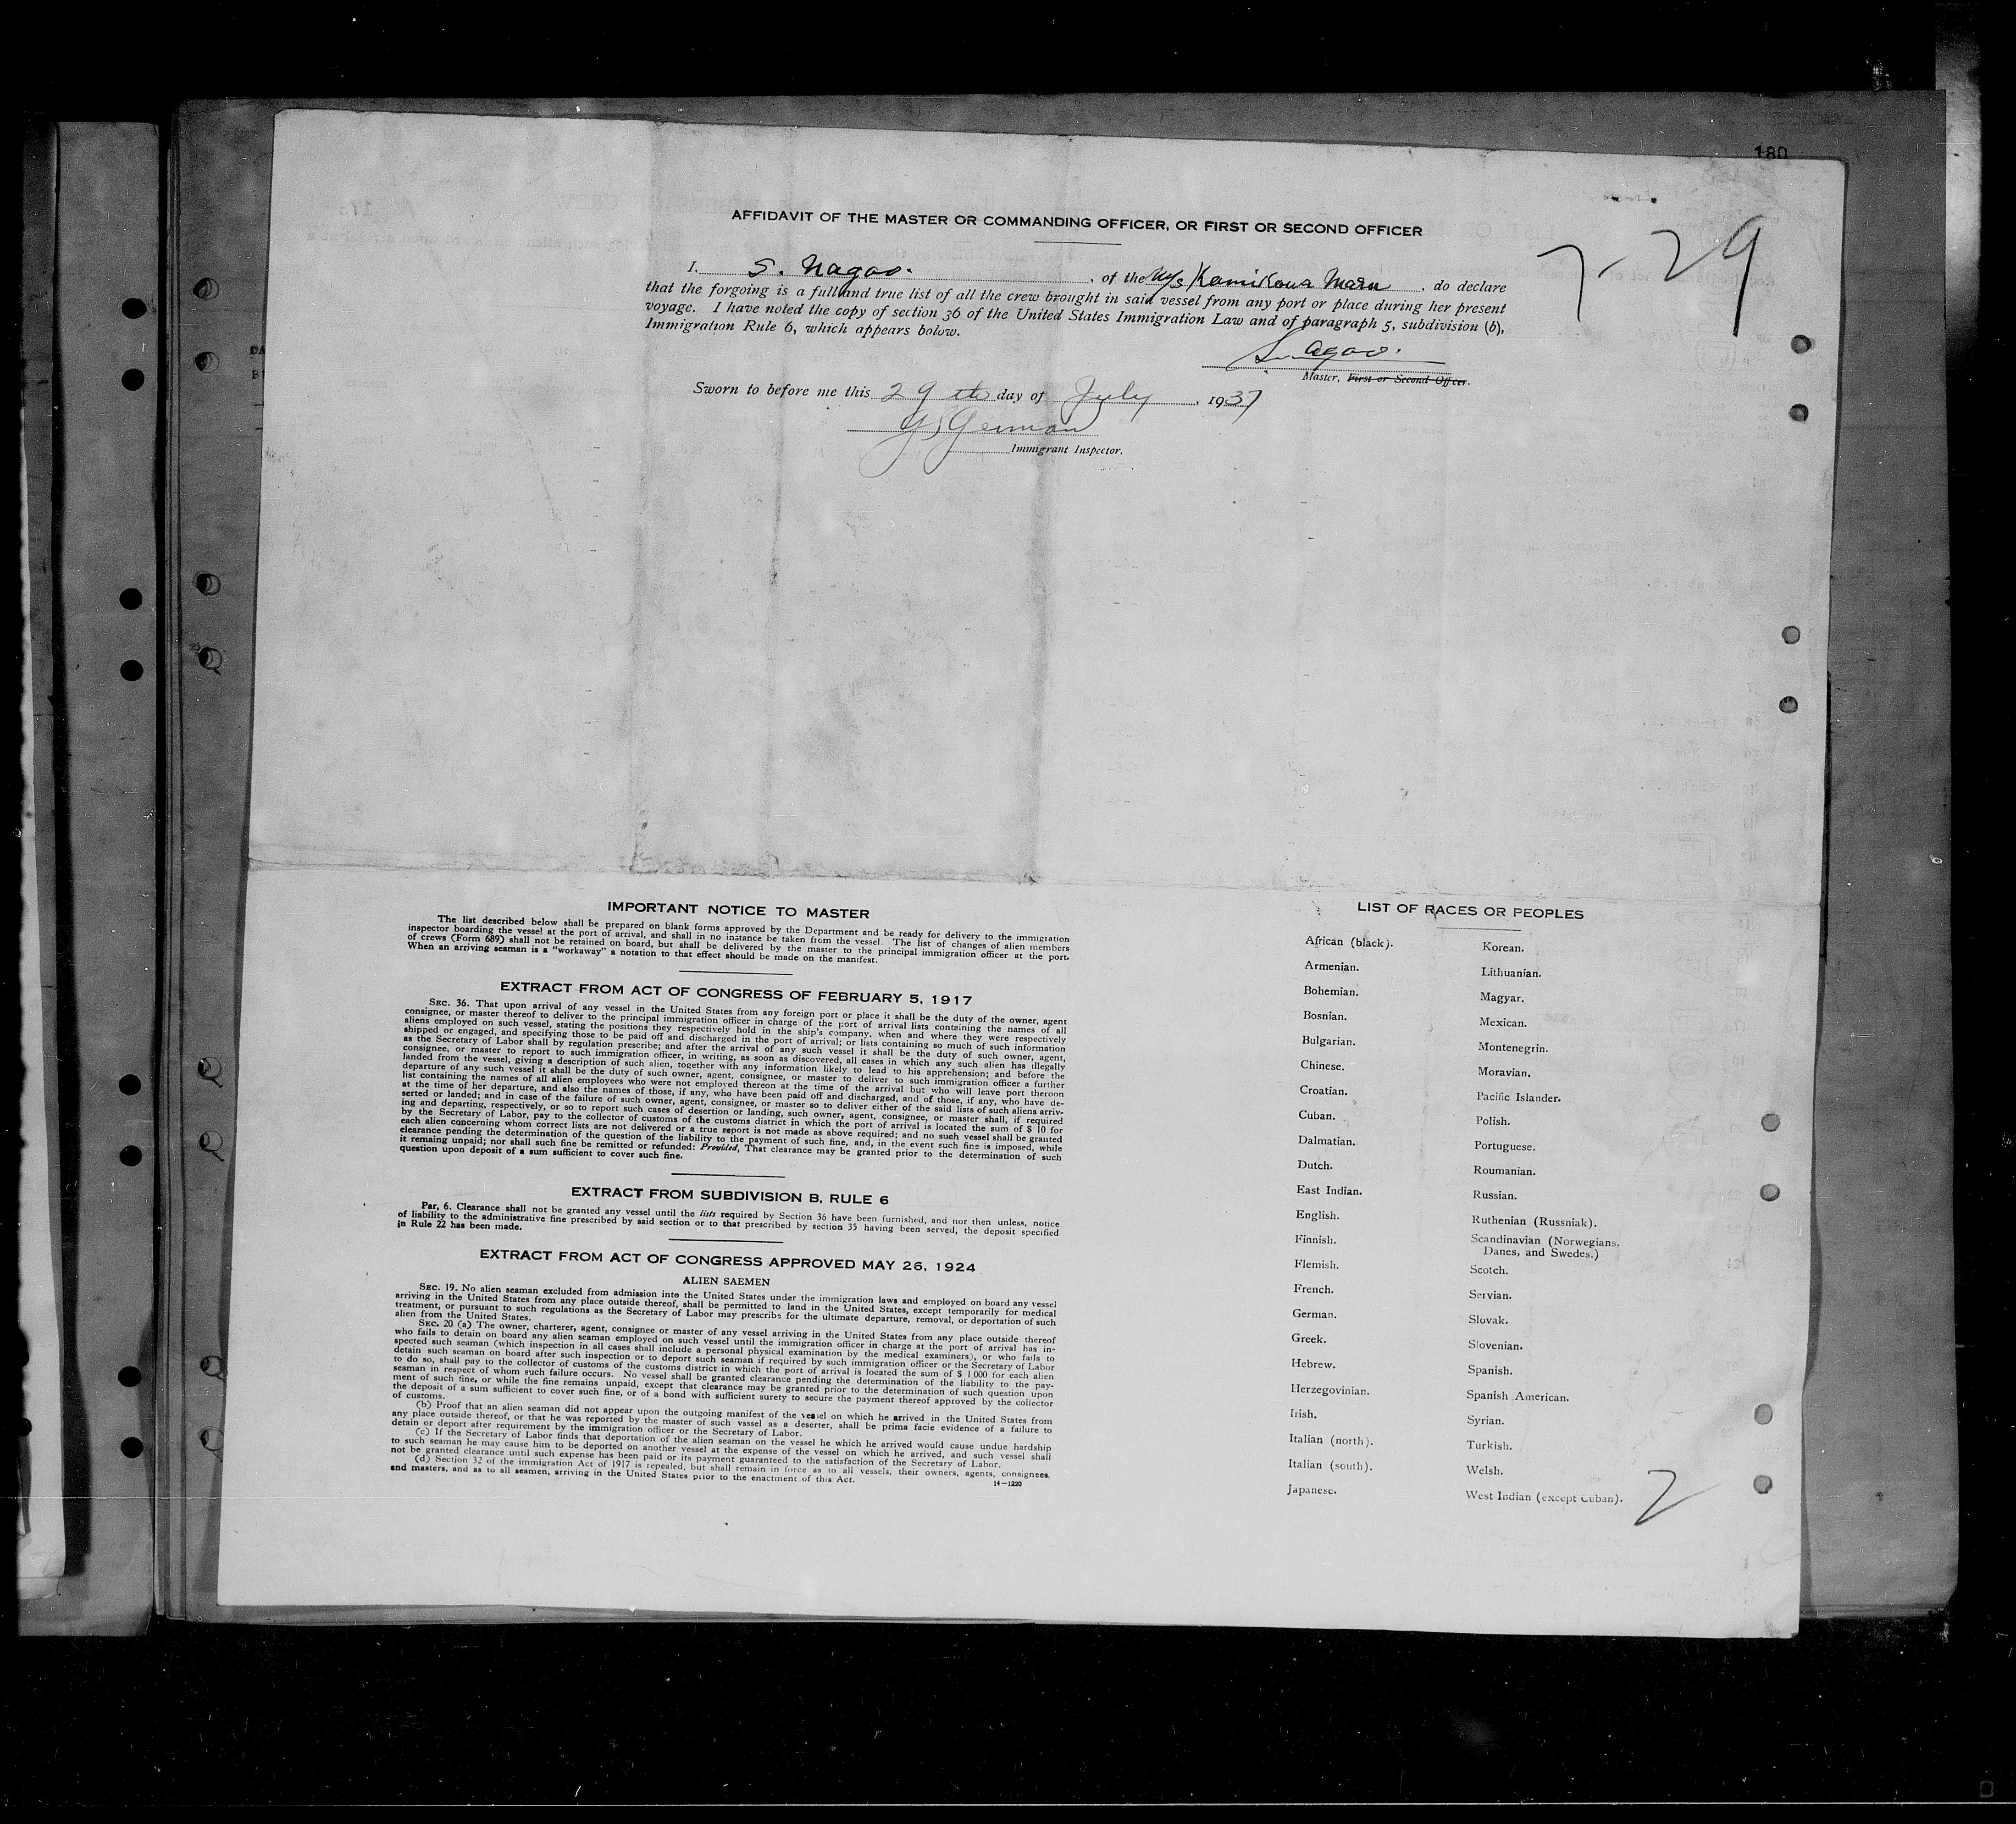 180
7-29
AFFIDAVIT OF THE MASTER OR COMMANDING OFFICER, OR FIRST OR SECOND OFFICER
I. S. Nagao. , of the M/S Kamikawa Maru . do declare
that the forgoing is a full and true list of all the crew brought in said vessel from any port or place during her present
voyage. I have noted the copy of section 36 of the United States Immigration Law and of paragraph 5, subdivision (b),
Immigration Rule 6, which appears below.
S. Nagao.
Master, First or Second Officer.
Sworn to before me this 29 th day of July , 1937
German
Immigrant Inspector.
IMPORTANT NOTICE TO MASTER
The list described below shall be prepared on blank forms approved by the Department and be ready for delivery to the immigration
inspector boarding the vessel at the port of arrival, and shall in no instance be taken from the vessel. The list of changes of alien members
of crews (Form 689) shall not be retained on board, but shall be delivered by the master to the principal immigration officer at the port.
When an arriving seaman is a "workaway" a notation to that effect should be made on the manifest.
EXTRACT FROM ACT OF CONGRESS OF FEBRUARY 5, 1917
SEC. 36. That upon arrival of any vessel in the United States from any foreign port or place it shall be the duty of the owner, agent
consignee, or master thereof to deliver to the principal immigration officer in charge of the port of arrival lists containing the names of all
aliens employed on such vessel, stating the positions they respectively hold in the ship's company, when and where they were respectively
shipped or engaged, and specifying those to be paid off and discharged in the port of arrival; or lists containing so much of such information
as the Secretary of Labor shall by regulation prescribe; and after the arrival of any such vessel it shall be the duty of such owner, agent,
consignee, or master to report to such immigration officer, in writing, as soon as discovered, all cases in which any such alien has illegally
landed from the vessel, giving a description of such alien, together with any information likely to lead to his apprehension; and before the
departure of any such vessel it shall be the duty of such owner, agent, consignee, or master to deliver to such immigration officer a further
list containing the names of all alien employees who were not employed thereon at the time of the arrival but who will leave port thereon
at the time of her departure, and also the names of those, if any, who have been paid off and discharged, and of those, if any, who have de-
serted or landed; and in case of the failure of such owner, agent, consignee, or master so to deliver either of the said lists of such aliens arriv-
ing and departing, respectively, or so to report such cases of desertion or landing, such owner, agent, consignee, or master shall, if required
by the Secretary of Labor, pay to the collector of customs of the customs district in which the port of arrival is located the sum of $ 10 for
each alien concerning whom correct lists are not delivered or a true report is not made as above required; and no such vessel shall be granted
clearance pending the determination of the question of the liability to the payment of such fine, and, in the event such fine is imposed, while
it remaing unpaid; nor shall such fine be remitted or refunded: Provided, That clearance may be granted prior to the determination of such
question upon deposit of a sum sufficient to cover such fine.
EXTRACT FROM SUBDIVISION B, RULE 6
Par, 6. Clearance shall not be granted any vessel until the lists required by Section 36 have been furnished, and nor then unless, notice
of liability to the administrative fine prescribed by said section or to that prescribed by section 35 having been served, the deposit specified
in Rule 22 has been made.
EXTRACT FROM ACT OF CONGRESS APPROVED MAY 26, 1924
ALIEN SAEMEN
SEC. 19. No alien seaman excluded from admission into the United States under the immigration laws and employed on board any vessel
arriving in the United States from any place outside thereof, shall be permitted to land in the United States, except temporarily for medical
treatment, or pursuant to such regulations as the Secretary of Labor may prescribe for the ultimate departure, removal, or deportation of such
alien from the United States.
SEC. 20 (a) The owner, charterer, agent, consignee or master of any vessel arriving in the United States from any place outside thereof
who fails to detain on board any alien seaman employed on such vessel until the immigration officer in charge at the port of arrival has in-
spected such seaman (which inspection in all cases shall include a personal physical examination by the medical examiners), or who fails to
detain such seaman on board after such inspection or to deport such seaman if required by such immigration officer or the Secretary of Labor
to do so, shall pay to the collector of customs of the customs district in which the port of arrival is located the sum of $ 1000 for each alien
seaman in respect of whom such failure occurs. No vessel shall be granted clearance pending the determination of the liability to the pay-
ment of such fine, or while the fine remains unpaid, except that clearance may be granted prior to the determination of such question upon
the deposit of a sum sufficient to cover such fine, or of a bond with sufficient surety to secure the payment thereof approved by the collector
of customs.
(b) Proof that an alien seaman did not appear upon the outgoing manifest of the vessel on which he arrived in the United States from
any place outside thereof, or that he was reported by the master of such vsssel as a deserter, shall be prima facie evidence of a failure to
detain or deport after requirement by the immigration officer or the Secretary of Labor.
(c) If the Secretary of Labor finds that deportation of the alien seaman on the vessel he which he arrived would cause undue hardship
to such seaman he may cause him to be deported on another vessel at the expense of the vessel on which he arrived, and such vessel shall
not be granted clearance until such expense has been paid or its payment guaranteed to the satisfaction of the Secretary of Labor.
(d) Section 32 of the immigration Act of 1917 is repealed, but shall remain in force as to all vessels, their owners, agents, consignees,
and masters, and as to all seamen, arriving in the United States prior to the enactment of this Act.
14-1220
LIST OF RACES OR PEOPLES
African (black).
Armenian.
Bohemian.
Bosnian.
Bulgarian.
Chinese.
Croatian.
Cuban.
Dalmatian.
Dutch.
East Indian.
English.
Finnish.
Flemish.
French.
German.
Greek.
Hebrew.
Herzegovinian.
Irish.
Italian (north).
Italian (south).
Japanese.
Korean.
Lithuanian.
Magyar.
Mexican.
Montenegrin.
Moravian.
Pacific Islander.
Polish.
Portuguese.
Roumanian.
Russian.
Ruthenian (Russniak).
Scandinavian (Norwegians,
Danes, and Swedes.)
Scotch.
Servian.
Slovak.
Slovenian.
Spanish.
Spanish American.
Syrian.
Turkish.
Welsh.
West Indian (except Cuban).
2